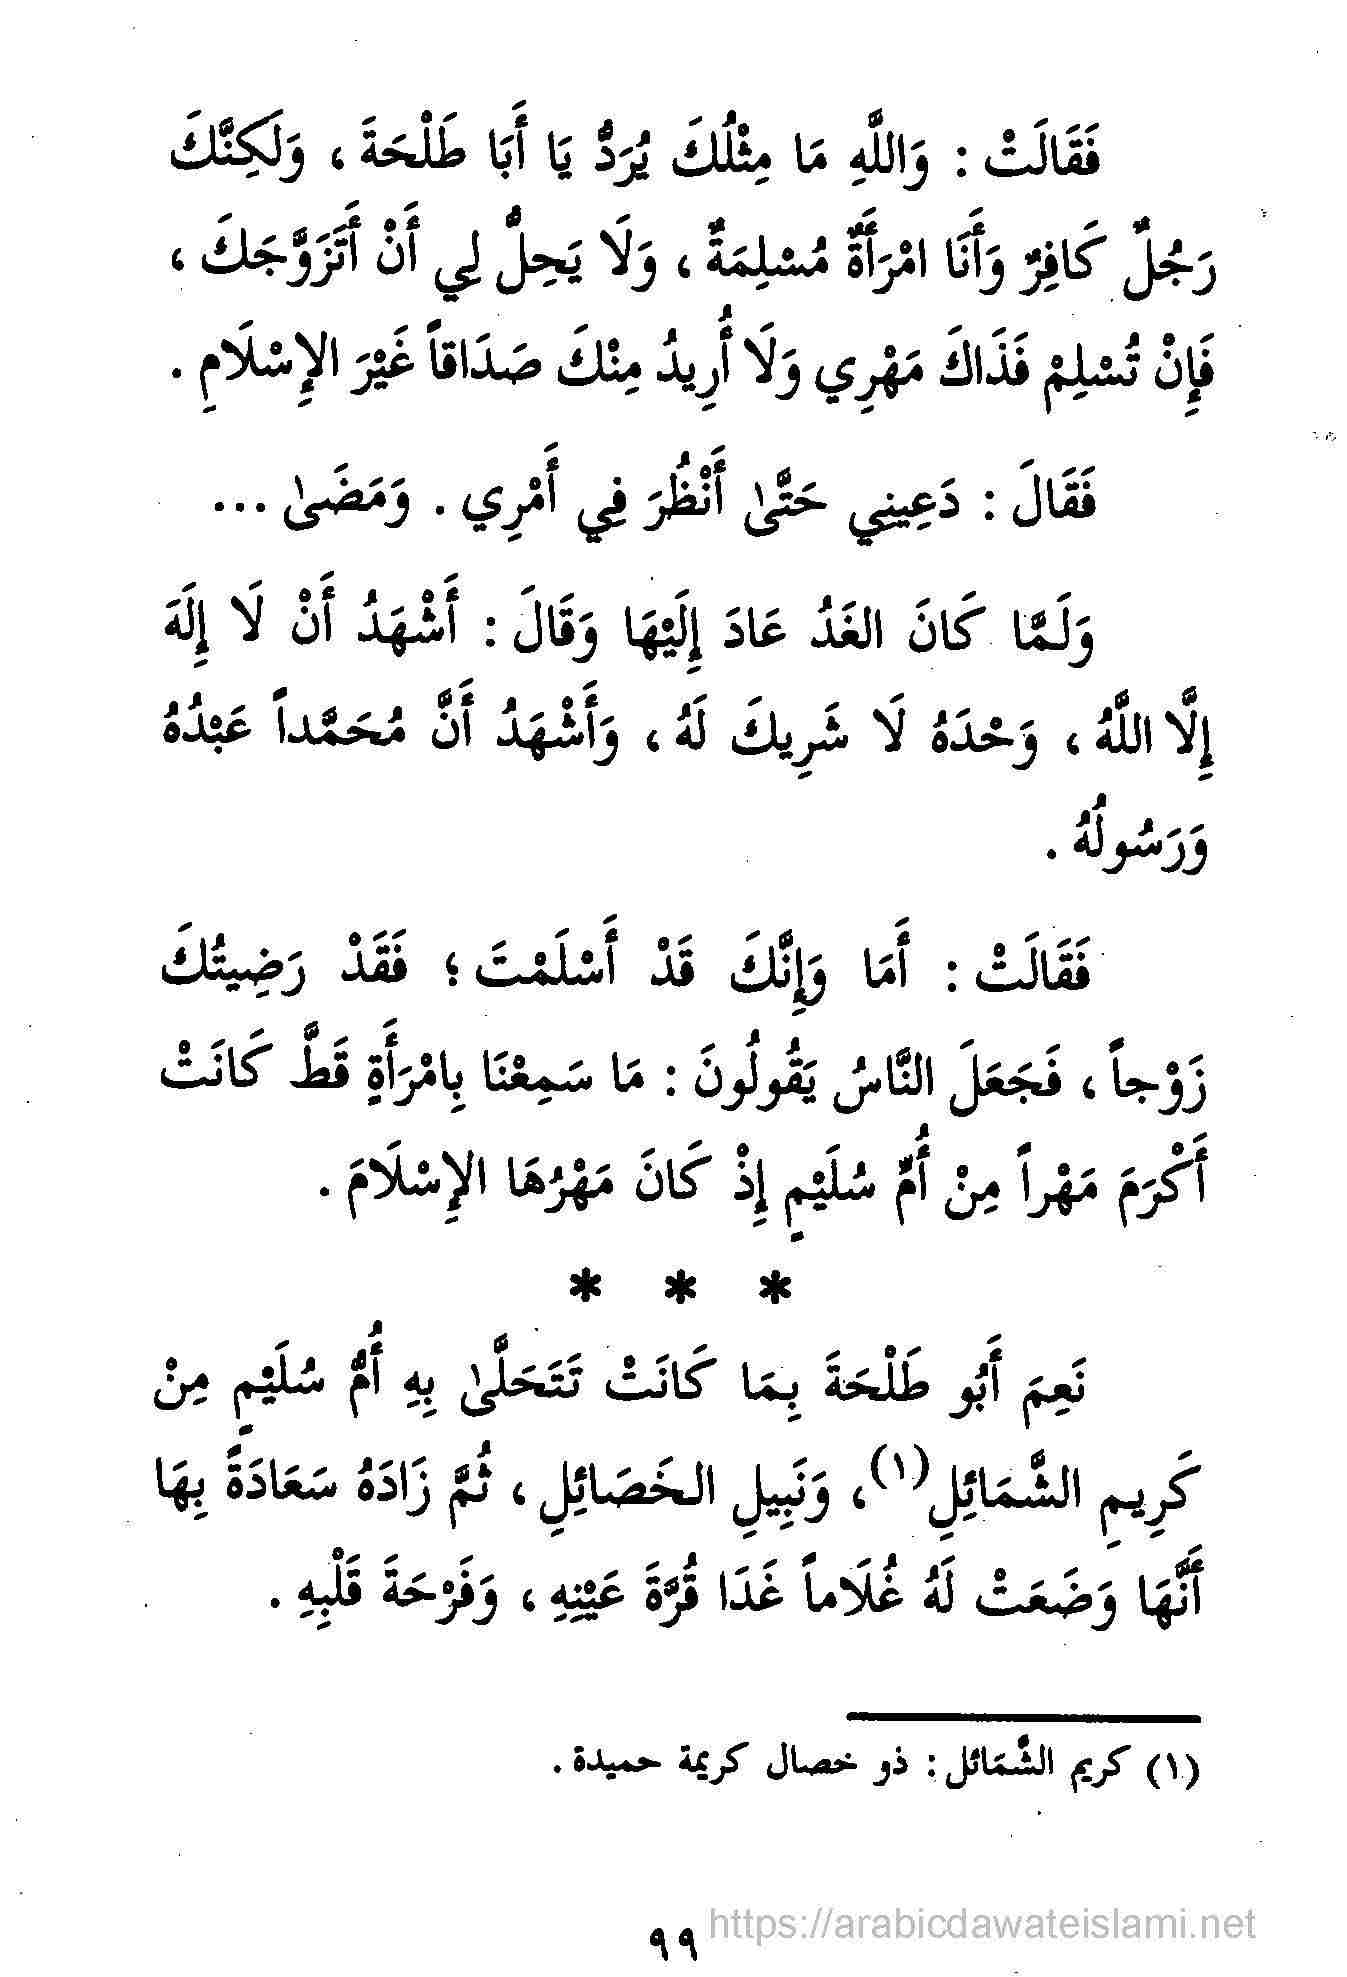 فَقَالَتْ : وَاللَّهِ مَا مِثْلُكَ يُرَدُّ يَا أَبَا طَلْحَةَ ، وَلَكِنَّكَ
رَجُلٌ كَافِرٌ وَأَنَا امْرَأَةٌ مُسْلِمَةٌ ، وَلَا يَحِلُّ لِي أَنْ أَتَزَوَّجَكَ ،
فَإِنْ تُسْلِمْ فَذَاكَ مَهْرِي وَلَا أُرِيدُ مِنْكَ صَدَاقاً غَيْرَ الإِسْلَامِ .
فَقَالَ : دَعِينِي حَتَّىٰ أَنْظُرَ فِي أَمْرِي . وَمَضَىٰ ...
وَلَمَّا كَانَ الغَدُ عَادَ إِلَيْهَا وَقَالَ : أَشْهَدُ أَنْ لَا إِلَهَ
إِلَّا اللَّهُ ، وَحْدَهُ لَا شَرِيكَ لَهُ ، وَأَشْهَدُ أَنَّ مُحَمَّداً عَبْدُهُ
وَرَسُولُهُ .
فَقَالَتْ : أَمَا وَإِنَّكَ قَدْ أَسْلَمْتَ ؛ فَقَدْ رَضِيتُكَ
زَوْجاً ، فَجَعَلَ النَّاسُ يَقُولُونَ : مَا سَمِعْنَا بِامْرَأَةٍ قَطَّ كَانَتْ
أَكْرَمَ مَهْراً مِنْ أُمِّ سُلَيْمٍ إِذْ كَانَ مَهْرُهَا الإِسْلَامَ .
* * *
نَعِمَ أَبُو طَلْحَةَ بِمَا كَانَتْ تَتَحَلَّىٰ بِهِ أُمُّ سُلَيْمٍ مِنْ
كَرِيمِ الشَّمَائِلِ(١)، وَنَبِيلِ الخَصَائِلِ ، ثُمَّ زَادَهُ سَعَادَةً بِهَا
أَنَّهَا وَضَعَتْ لَهُ غُلَاماً غَدَا قُرَّةَ عَيْنِهِ ، وَفَرْحَةَ قَلْبِهِ .
(١) كريم الشَّمَائل : ذو خصال كريمة حميدة .
٩٩
https://arabicdawateislami.net